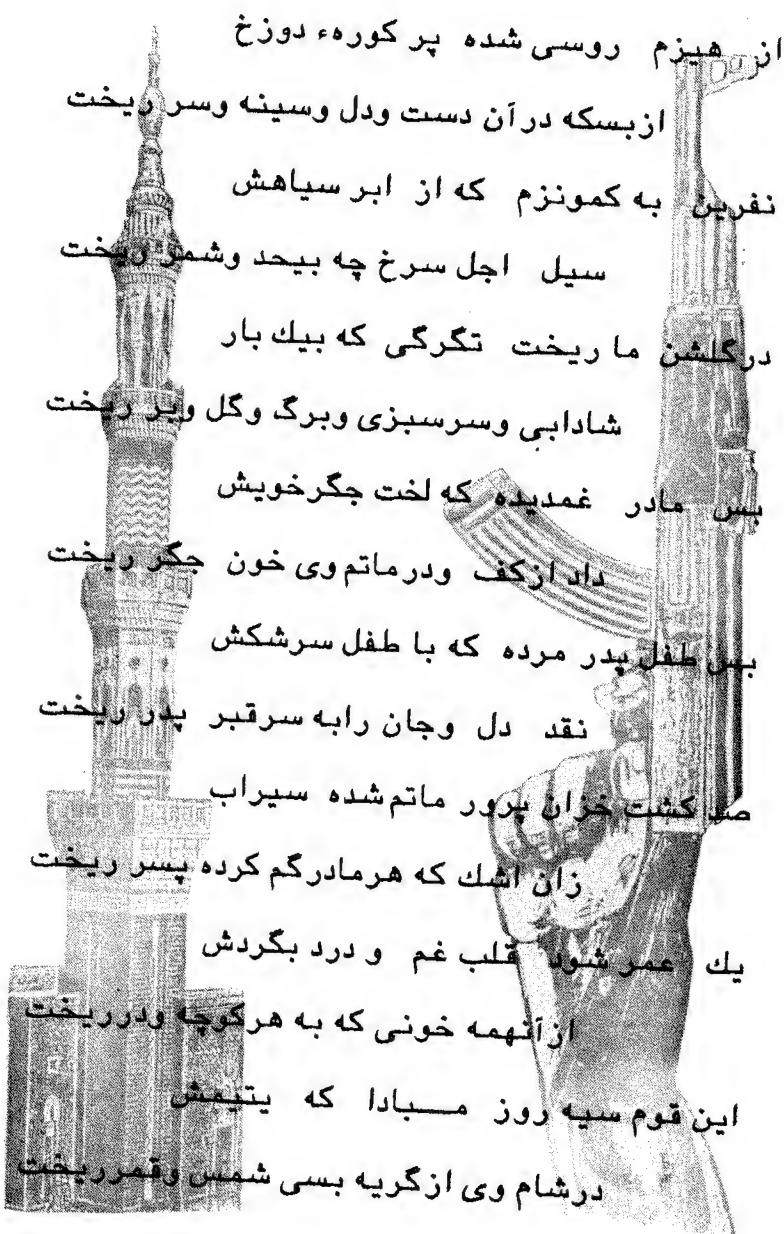 از هیزم روسی شده پر کورهء دوزخ
ازبسکه درآن دست ودل وسینه وسر ریخت
نفرین به کمونزم که از ابر سیاهش
سیل اجل سرخ چه بیحد وشمر ریخت
درگلشن ما ریخت تگرگی که بیك بار
شادابی وسرسبزی وبرگ وگل وبر ریخت
بس مادر غمدیده که لخت جگرخویش
داد ازکف ودرماتم وی خون جگر ریخت
بس طفل پدر مرده که با طفل سرشکش
نقد دل وجان رابه سرقبر پدر ریخت
صد کشت خزان پرور ماتم شده سیراب
زان اشك که هرمادرگم کرده پسر ریخت
یك عمر شود قلب غم و درد بگردش
ازآنهمه خونی که به هرکوچه ودرریخت
این قوم سیه روز مــبادا که یتیمش
درشام وی ازگریه بسی شمس وقمرریخت